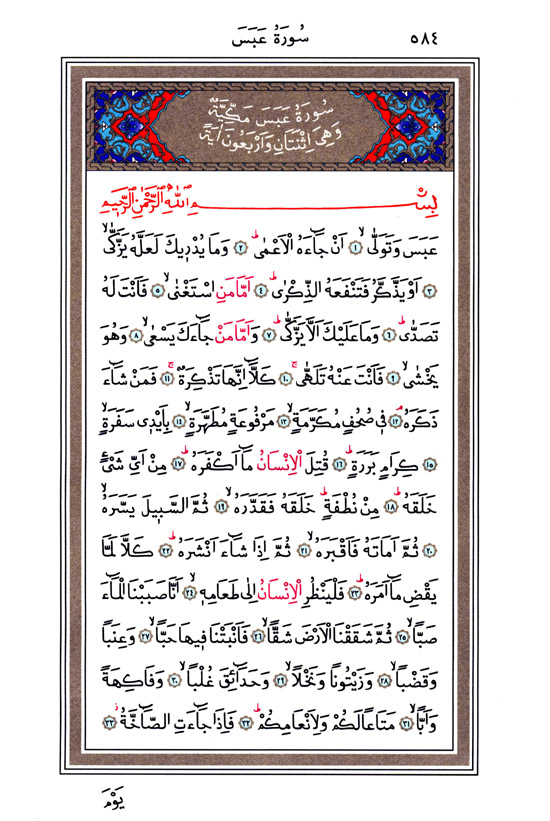 سُورَةُ عَبَسَ ٥٨٤
سُورَةُ عَبَسَ مَكِّيَّةٌ
وَهِىَ اِثْنَتَانِ وَاَرْبَعُونَ اٰيَةً
بِسْمِ اللّٰهِ الرَّحْمٰنِ الرَّحٖيمِ
عَبَسَ وَتَوَلّٰىۙ ﴿١﴾ اَنْ جَٓاءَهُ الْاَعْمٰىۜ ﴿٢﴾ وَمَا يُدْرٖيكَ لَعَلَّهُ يَزَّكّٰىۙ
﴿٣﴾ اَوْ يَذَّكَّرُ فَتَنْفَعَهُ الذِّكْرٰىۜ ﴿٤﴾ اَمَّا مَنِ اسْتَغْنٰىۙ ﴿٥﴾ فَاَنْتَ لَهُ
تَصَدّٰىۜ ﴿٦﴾ وَمَا عَلَيْكَ اَلَّا يَزَّكّٰىۜ ﴿٧﴾ وَاَمَّا مَنْ جَٓاءَكَ يَسْعٰىۙ ﴿٨﴾ وَهُوَ
يَخْشٰىۙ ﴿٩﴾ فَاَنْتَ عَنْهُ تَلَهّٰىۚ ﴿١٠﴾ كَلَّٓا اِنَّهَا تَذْكِرَةٌۚ ﴿١١﴾ فَمَنْ شَٓاءَ
ذَكَرَهُۢ ﴿١٢﴾ فٖى صُحُفٍ مُكَرَّمَةٍۙ ﴿١٣﴾ مَرْفُوعَةٍ مُطَهَّرَةٍۙ ﴿١٤﴾ بِاَيْدٖى سَفَرَةٍۙ
﴿١٥﴾ كِرَامٍ بَرَرَةٍۜ ﴿١٦﴾ قُتِلَ الْاِنْسَانُ مَٓا اَكْفَرَهُۜ ﴿١٧﴾ مِنْ اَىِّ شَىْءٍ
خَلَقَهُۜ ﴿١٨﴾ مِنْ نُطْفَةٍۜ خَلَقَهُ فَقَدَّرَهُۙ ﴿١٩﴾ ثُمَّ السَّبٖيلَ يَسَّرَهُۙ
﴿٢٠﴾ ثُمَّ اَمَاتَهُ فَاَقْبَرَهُۙ ﴿٢١﴾ ثُمَّ اِذَا شَٓاءَ اَنْشَرَهُۜ ﴿٢٢﴾ كَلَّا لَمَّا
يَقْضِ مَٓا اَمَرَهُۜ ﴿٢٣﴾ فَلْيَنْظُرِ الْاِنْسَانُ اِلٰى طَعَامِهٖۙ ﴿٢٤﴾ اَنَّا صَبَبْنَا الْمَٓاءَ
صَبًّاۙ ﴿٢٥﴾ ثُمَّ شَقَقْنَا الْاَرْضَ شَقًّاۙ ﴿٢٦﴾ فَاَنْبَتْنَا فٖيهَا حَبًّاۙ ﴿٢٧﴾ وَعِنَبًا
وَقَضْبًاۙ ﴿٢٨﴾ وَزَيْتُونًا وَنَخْلًاۙ ﴿٢٩﴾ وَحَدَٓائِقَ غُلْبًاۙ ﴿٣٠﴾ وَفَاكِهَةً
وَاَبًّاۙ ﴿٣١﴾ مَتَاعًا لَكُمْ وَلِاَنْعَامِكُمْۜ ﴿٣٢﴾ فَاِذَا جَٓاءَتِ الصَّٓاخَّةُؗ ﴿٣٣﴾
يَوْمَ